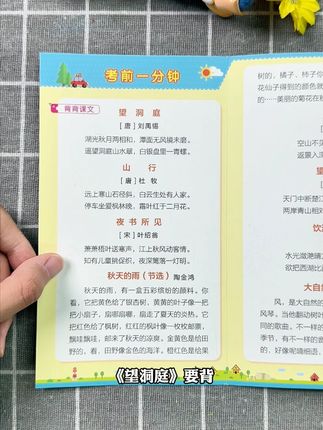 考前一分钟
背背课文
望洞庭
[唐] 刘禹锡
湖光秋月两相和，潭面无风镜未磨。
遥望洞庭山水翠，白银盘里一青螺。
山行
[唐] 杜牧
远上寒山石径斜，白云生处有人家。
停车坐爱枫林晚，霜叶红于二月花。
夜书所见
[宋] 叶绍翁
萧萧梧叶送寒声，江上秋风动客情。
知有儿童挑促织，夜深篱落一灯明。
秋天的雨（节选） 陶金鸿
秋天的雨，有一盒五彩缤纷的颜料。你
看，它把黄色给了银杏树，黄黄的叶子像一把
把小扇子，扇哪扇哪，扇走了夏天的炎热。它
把红色给了枫树，红红的枫叶像一枚枚邮票，
飘哇飘哇，邮来了秋天的凉爽。金黄色是给田
野的，看，田野像金色的海洋。橙红色是给果
树的，橘子、柿子你
花仙子得到的颜色就
……美丽的菊花在秋
空山不见
返景入深
天门中断楚江
两岸青山相对
饮
水光潋滟晴
欲把西湖比
大自然
风，是大自然的
琴。当他翻动树叶
同的歌曲。不一样的
季节，有不一样的音
的，好像呢喃细语，
《望洞庭》要背